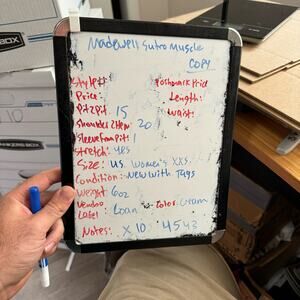 Madewell Sutro Muscle
COPY
Style#: Poshmark Price
Price: Length:
Pit2Pit: 15 Waist:
Shoulder2Hem: 20
Sleeve from Pit: 1
Stretch: yes
Size: US Women's XXS
Condition: New with Tags
Weight: 6oz
Vendoo
Label: Loan Color: Cream
Notes: X10 4543